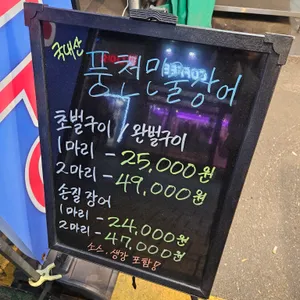 국내산
풍천민물장어
초벌구이 / 완벌구이
1마리 - 25,000원
2마리 - 49,000원
손질장어
1마리 - 24,000원
2마리 - 47,000원
소스, 생강 포함!